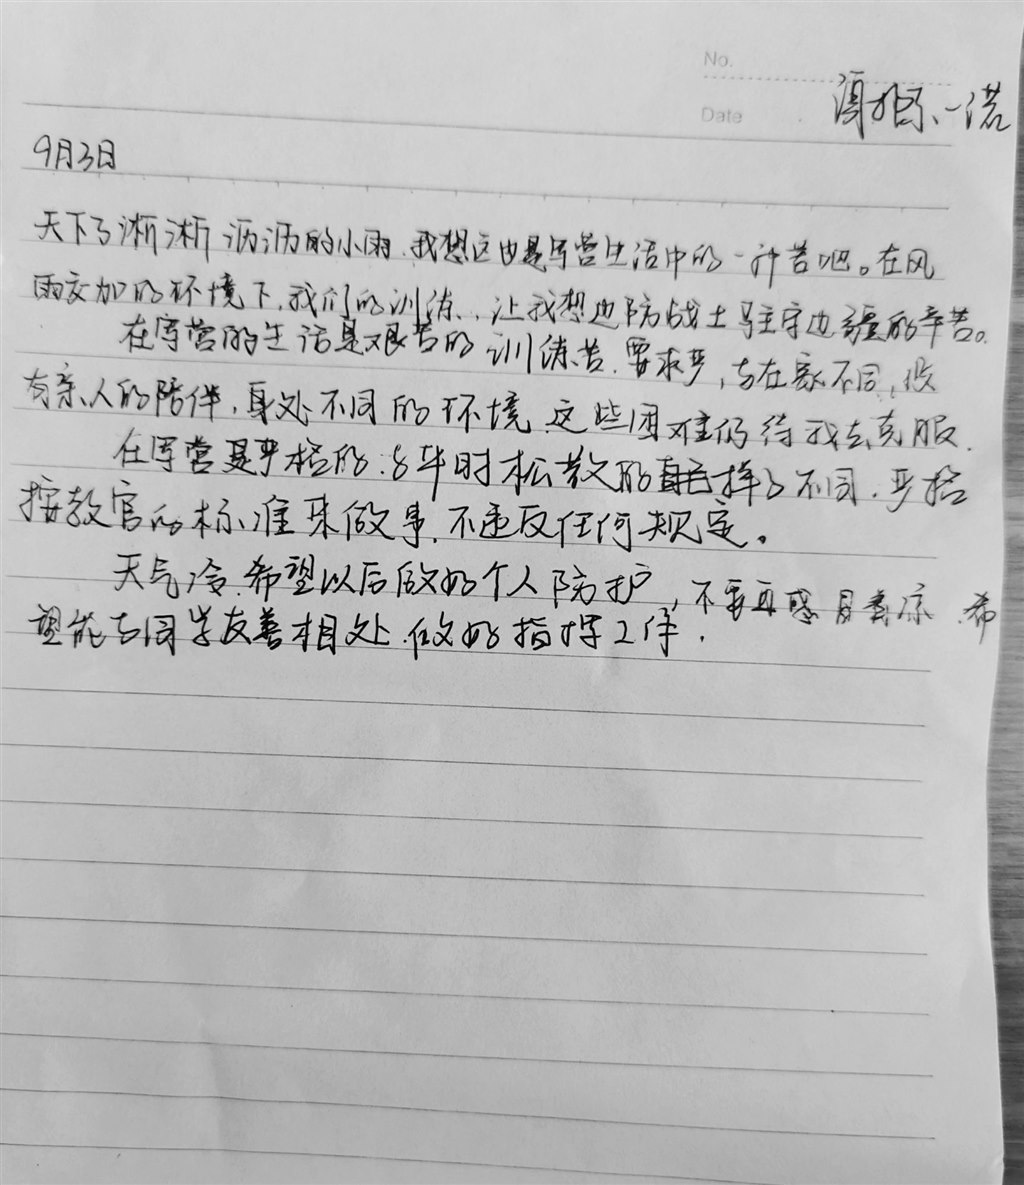 No.
Date
一诺
9月3日
天下了淅淅沥沥的小雨,我想这也是军营生活中的一种苦吧。在风
雨交加的环境下,我们的训练,让我想边防战士驻守边疆的辛苦。
在军营的生活是艰苦的 训练苦,要求严,与在家不同,没
有亲人的陪伴,身处不同的环境,这些困难仍待我去克服.
在军营是严格的,与平时松散的样子不同,严格
按教官的标准来做事,不违反任何规定。
天气冷,希望以后做好个人防护,不要再感冒着凉,希
望能与同学友善相处,做好指挥工作.